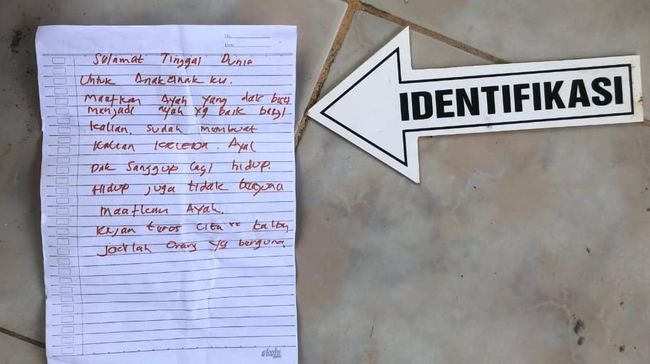 No.
Date
Selamat Tinggal Dunia
Untuk Anak Anak ku.
Maafkan Ayah yang dak bisa
menjadi ayah yg baik bagi
kalian, sudah membuat
kalian kecewa. Ayah
Dak sanggup lagi hidup.
Hidup juga tidak berguna
Maafkan Ayah.
Kejar terus cita² kalian
jadilah orang yg berguna.
IDENTIFIKASI